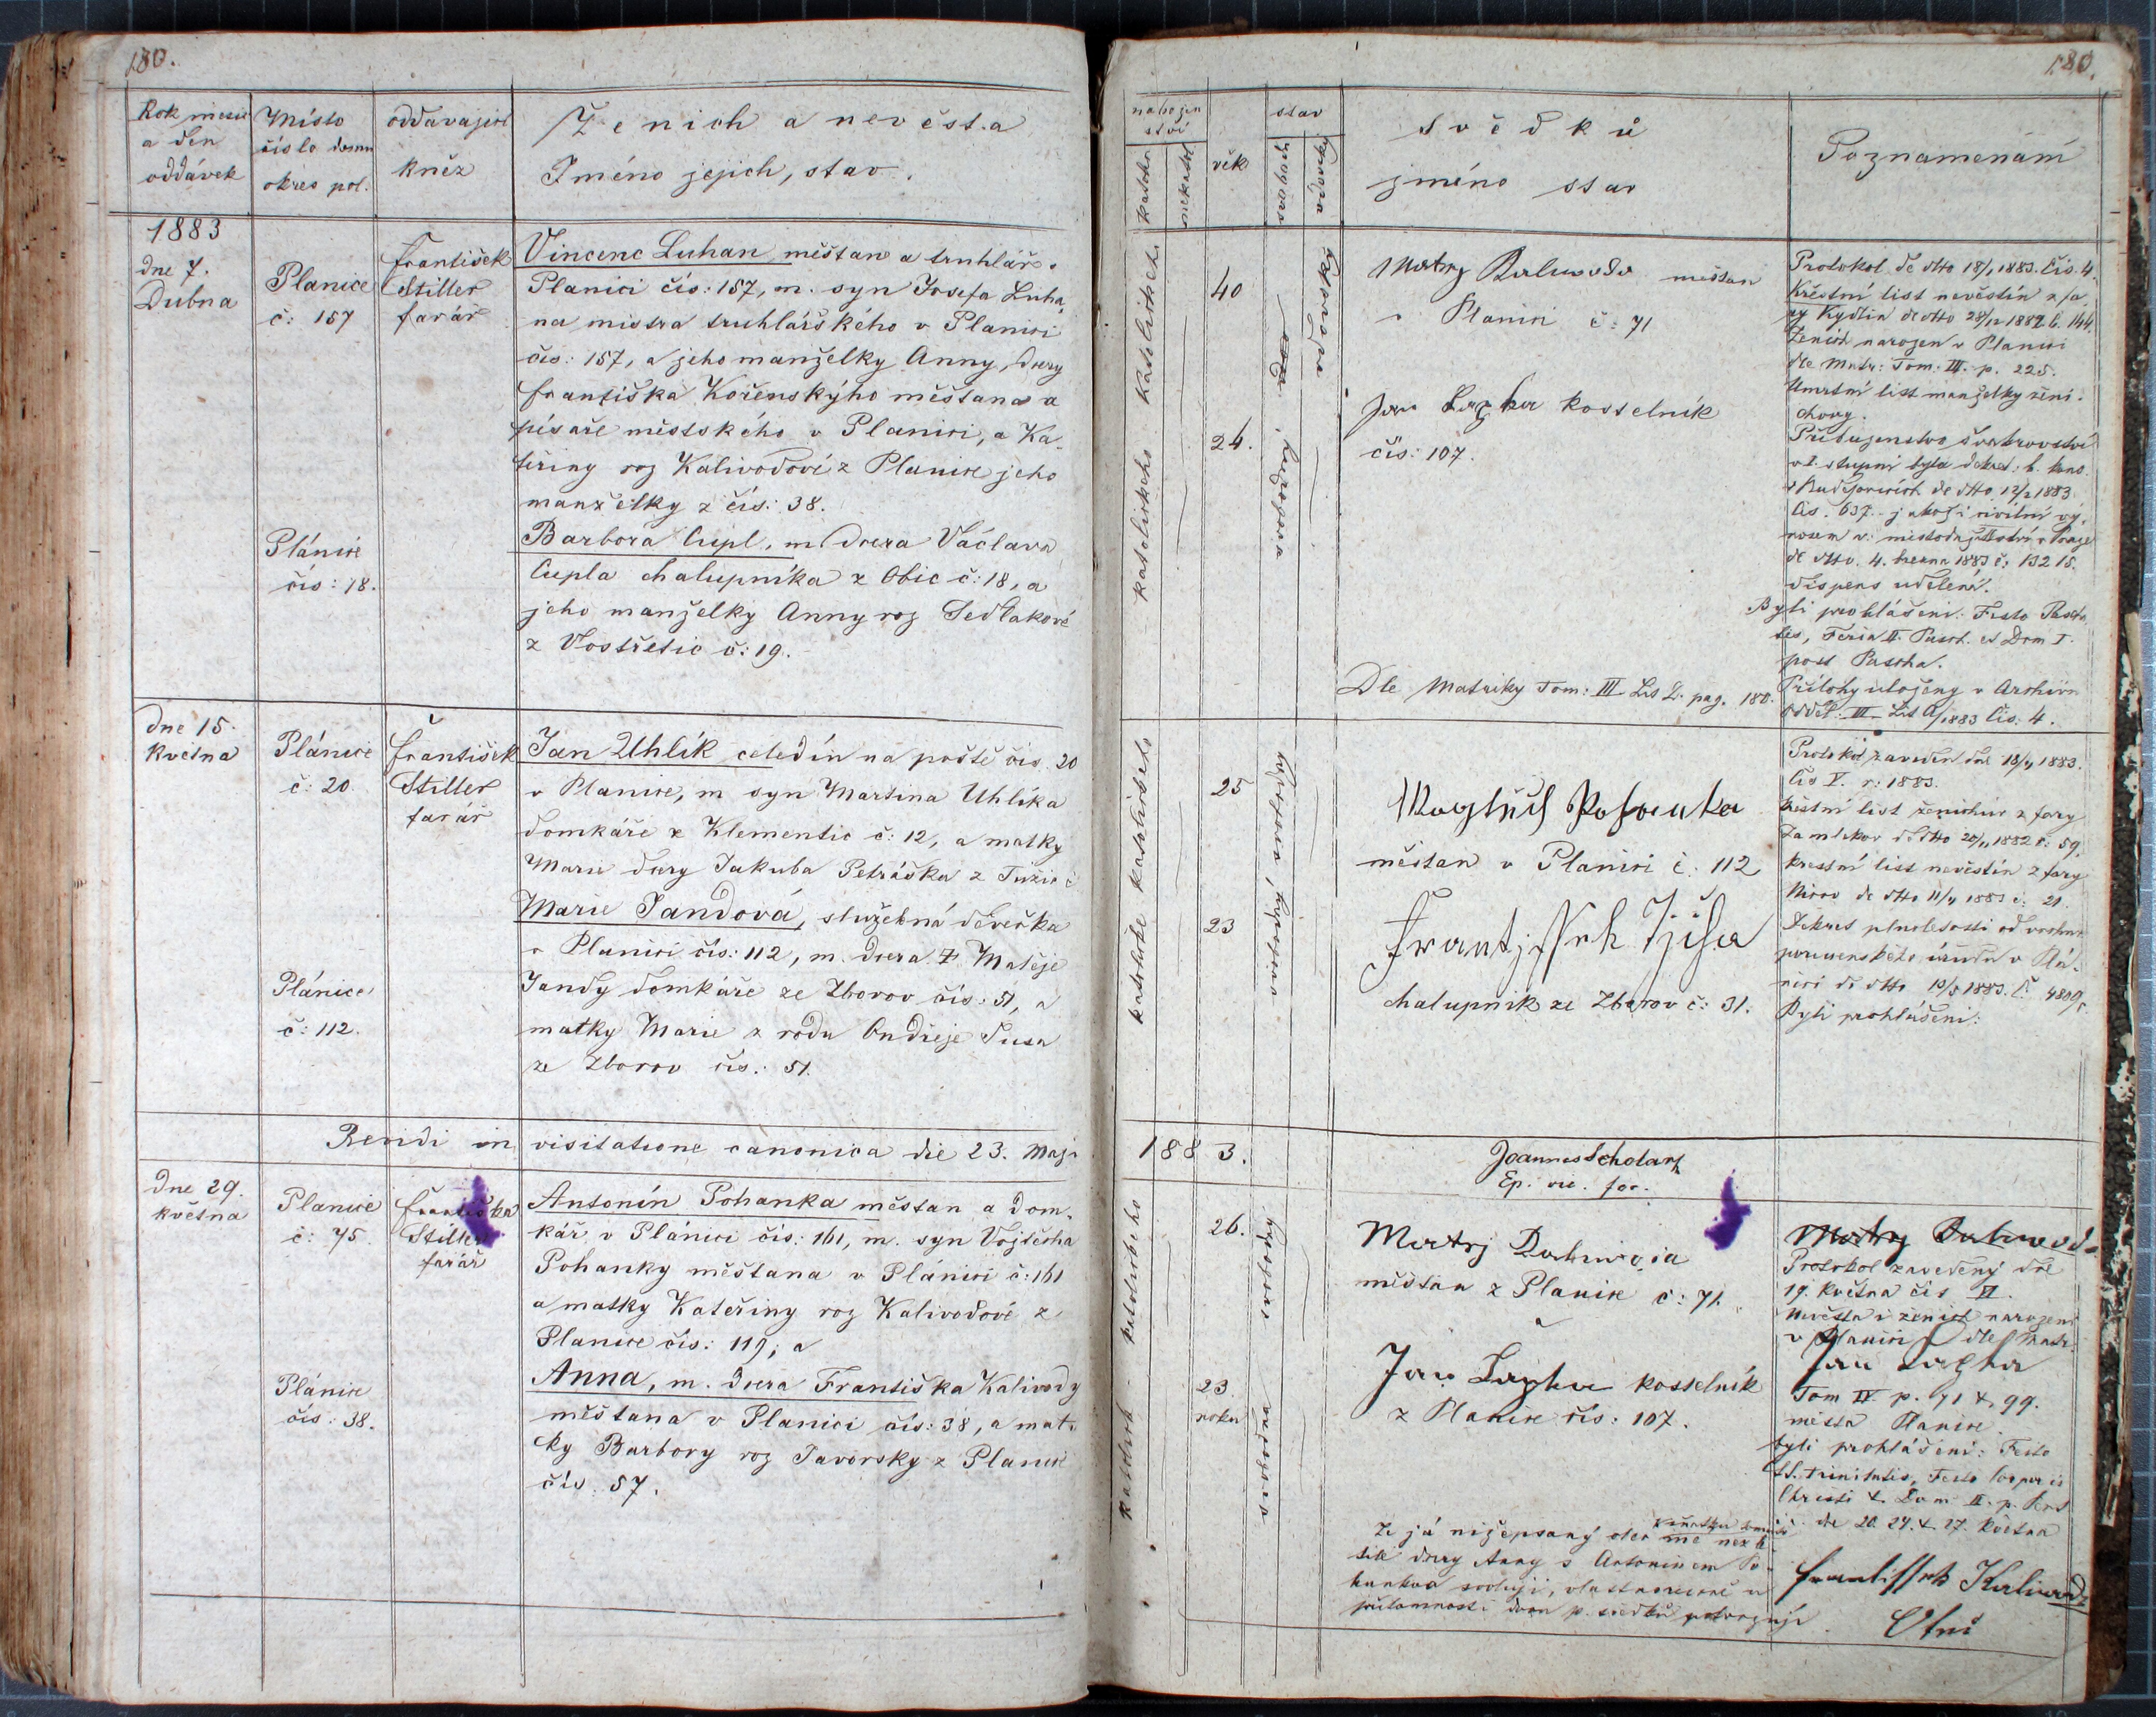 180.
Rok měsíc
a den
oddávek
Místo
číslo domu
okres pol.
oddávající
kněz
Ženich a nevěsta
Jméno jejich, stav.
1883
dne 7.
Dubna
Planice
č: 157
František
Stiller
farář
Vincenc Luhan měštan a truhlář v
Planici čís: 157, m. syn Josefa Luha
na mistra truhlářského v Planici
čís: 157, a jeho manželky Anny, dcery
Františka Kořenskýho měštana a
písaře městského v Planici, a Ka
teřiny roz Kalivodové z Planice jeho
manželky z čís: 38.
Plánice
čís: 18.
Barbora Cupl, m. dcera Václava
Cupla chalupníka z Obic č: 18, a
jeho manželky Anny roz Sedlakové
z Vostřetic č: 19.
dne 15.
Května
Plánice
č: 20.
František
Stiller
farář
Jan Uhlík čeledín na poště čís. 20
v Planice, m syn Martina Uhlíka
domkáře z Klementic č: 12, a matky
Marie dcery Jakuba Petráška z Tužic č
Plánice
č: 112.
Marie Jandová, služebná děvečka
v Planici čís: 112, m. dcera Matěje
Jandy domkáře ze Zborov čís: 51, a
matky Marie z rodu Ondřeje Tusa
ze Zborov čís.: 51.
Revidi in visitatione canonica die 23. Maji
dne 29.
května
Planice
č: 75.
Stiller
farář
Antonín Pohanka měštan a dom.
kář v Plánici čís: 161, m. syn Vojtěcha
Pohanky měštana v Plánici č: 161
a matky Kateřiny roz Kalivodové z
Planice čís: 119; a
Plánice
čís: 38.
Anna, m. dcera Františka Kalivody
měštana v Planici čís: 38, a mat.
ky Barbory roz Javorsky z Planice
čís. 57.
180.
nábožen
ství
katolic
nekatol
věk
stav
svobod
vdova
Svědků
jméno stav
Poznamenání
katolického katolického
40
24.
vdovec, svobodná
Matěj Kaliwoda měštan
v Planici č: 71
Jan Lazka kostelník
čís: 107.
Dle Matriky Tom: III Lit D. pag. 180.
Protokol de dtto 18/1 1883. Čís. 4.
Křestní list nevěstin z fa
ry Kydlin de dtto 28/12 1882 č. 144
Ženich narozen v Planici
dle Matr: Tom: III. p. 225.
Úmrtní list manželky ženi.
chovy.
Příbuzenstvo švakrovství
v I. stupni byla dekret. b. kons.
v Budějovicích de dtto 12/2 1883
Čís. 637. jakož i civilní vý.
nosem v: místodržitelství v Praze
de dtto. 4. března 1883 č: 13215.
dispens udelená.
Byli prohlášeni: Festo Pascha
tis, Feria II. Pasch. et Dom I.
post Pascha.
Přílohy uloženy v Archivu
Odděl: III Lit A/1883 čís: 4.
25
23
svobodný, svobodná
Wogtěch Pohanka
měštan v Planici č: 112
Frantjssek
chalupník ze Zborov č: 31.
Protokol zaveden dne 18/4 1883.
Čís V. r: 1883.
křestní list ženichův z fary
Zamlekov de dtto 20/11 1882 č: 59.
křestní list nevěstin z fary
Nicov de dtto 11/4 1883 č: 21.
Dekret plnoletosti od vrchn.
poručenského úřadu v Plá.
nici de dtto 10/5 1883. č. 4809.
Byli prohlášeni:
1883.
Joannes Scholarz
Ep. vic. for.
katolického
26.
23
roku
svobodný
svobodná
Matěj Kaliwoda
měštan z Planice č: 71.
Jan Lazka kostelník
z Planice čís: 107.
Protokol zavedený dne
19. května čís VI.
Nevěsta i ženich narozeni
v Planici dle Matr.
Jan Lazka
Tom IV p. 71 & 99.
města Planice.
byli prohlášeni: Festo
SS. Trinitatis, Festo Corporis
Christi & Dom II. p. Pent
de 20. 24. & 27. května
že já nížepsaný otec k sňatku
dcery Anny s Antonínem Po
hankou svoluji, vlastnoručně v
přítomnosti dvou p. svědků potvrzuji.
Frantissek Kaliwoda
Otec